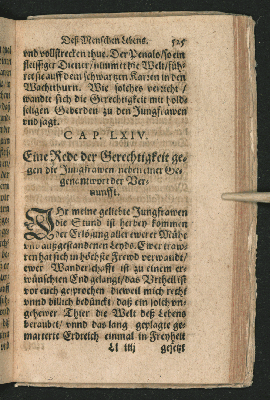 Deß Menschen Lebens. 525
vnd vollstrecken thue. Der Penalo/ so ein
fleissiger Diener/ nimmet die Welt/ füh-
ret sie auff dem schwartzen Karren in den
Wachtthurn. Wie solches verricht/
wandte sich die Gerechtigkeit mit hold-
seligen Geberden zu den Jungfrawen
vnd sagt.
CAP. LXIV.
Eine Rede der Gerechtigkeit ge-
gen die Jungfrawen neben einer Ge-
genantwort der Ver-
nunfft.
IHr meine geliebte Jungfrawen
die Stund ist herbey kommen
der Erlösung aller ewerer Mühe
vnd außgestandenen Leyds. Ewer traw-
ren hat sich in höchste Frewd verwandt/
ewer Wanderschafft ist zu einem er-
wünschten End gelangt/ das Vrtheil ist
vor euch gesprochen dieweil mich recht
vnnd billich bedünckt/ daß ein solch vn-
gehewer Thier die Welt deß Lebens
beraubt/ vnnd das lang geplagte ge-
marterte Erdreich einmal in Freyheit
Ll iiij gesetzt